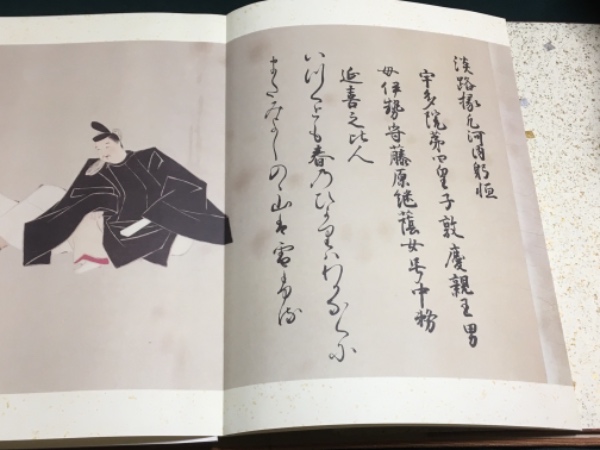 淡路掾凡河内躬恒
宇多院第四皇子敦慶親王男
母伊勢寄藤原継蔭女号中務
延喜之比人
いつくとも春乃ひかりハわかなくに
またみよしのゝ山は雪ふる